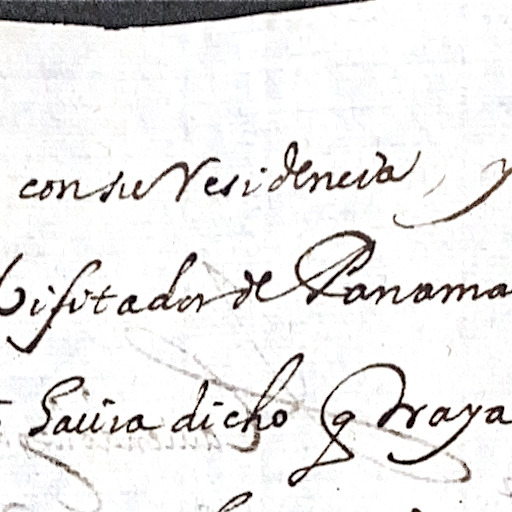 con su residencia, y
visitador de Panama
havia dicho q traya